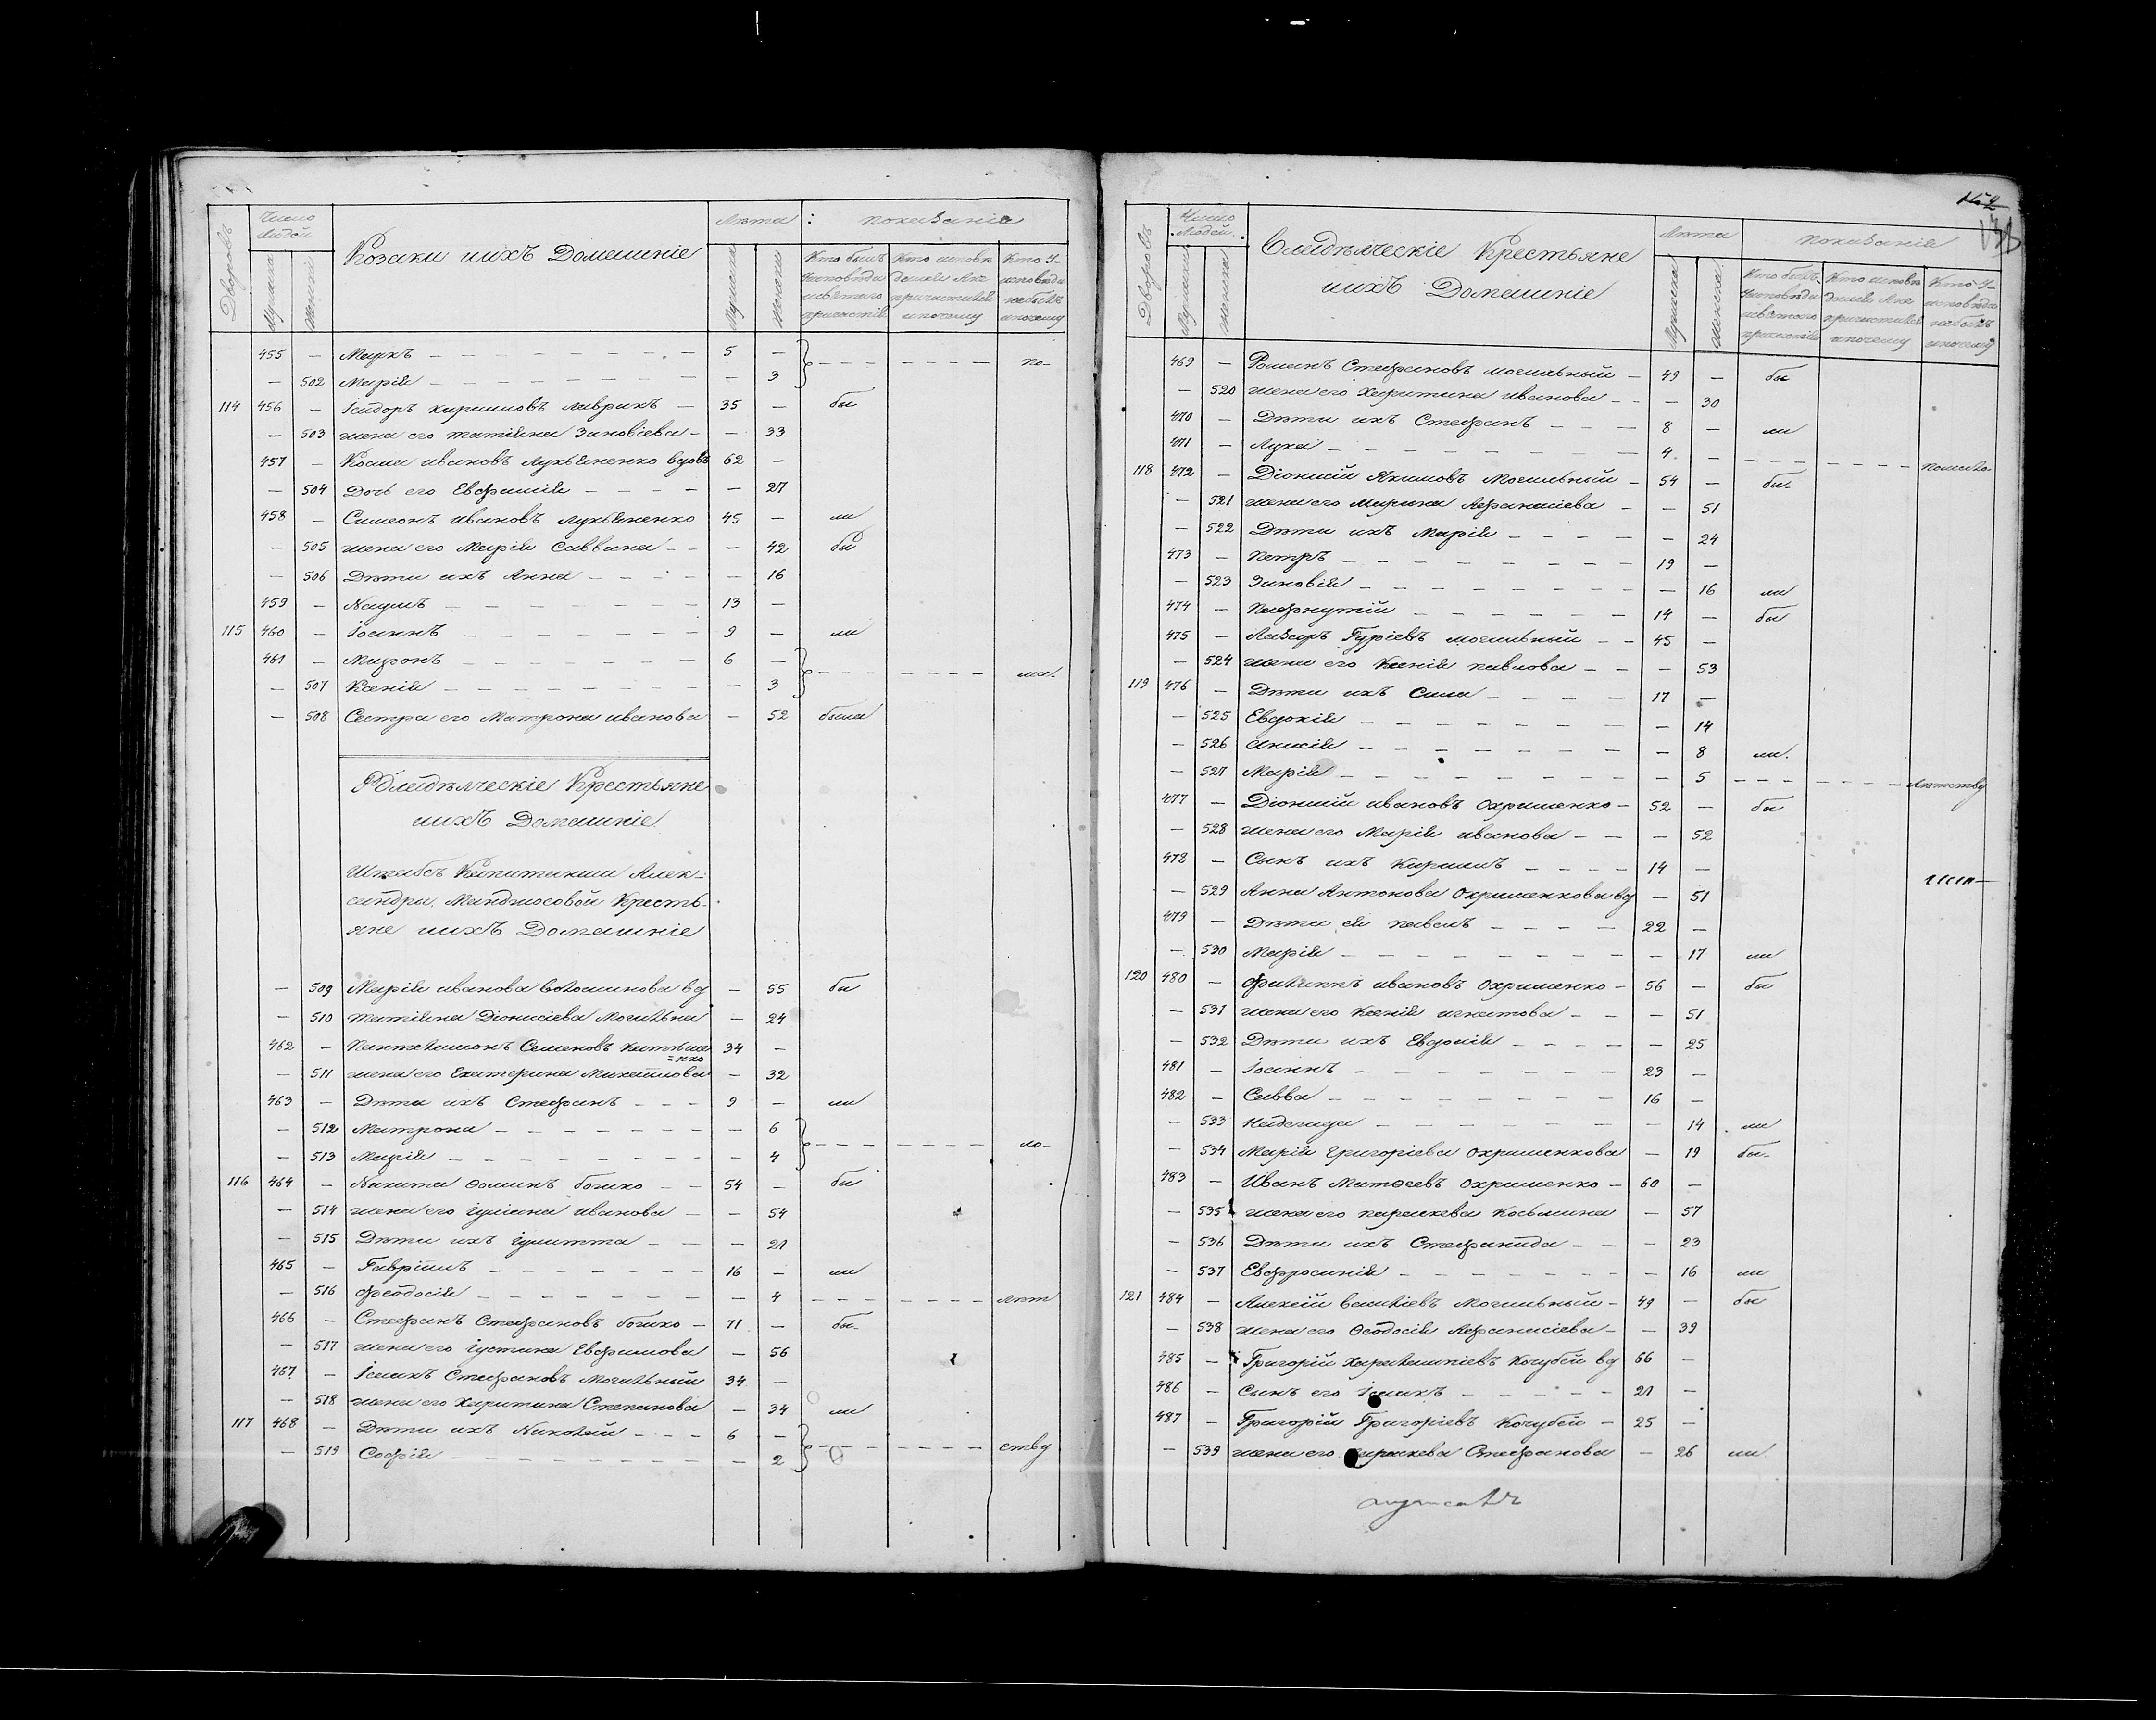 Дворовъ
Число Людей
Мужска
Женска
Козаки иихъ Домашніе
Лѣта
Мужска
Женска
показаніе
Кто былъ Уисповѣди исвятого причастія
Кто исповѣ дался Ане причастился ипочему
Кто У- исповѣди небылъ ипочему
455 — Маркъ — 5 — по-
— 502 Марія — — 3
114 456 — Ісидоръ Кириловъ Лаврикъ — 35 — бы
— 503 жена его татіяна Зиновіева — — 33
457 — Косма ивановъ Лукьяненко вдовъ 62 —
— 504 Дочь его Евфимія — — 27
458 — Симеонъ ивановъ Лукьяненко 45 — ли
— 505 жена его Марія Саввина — — 42 бы
— 506 Дѣти ихъ Анна — — 16
459 — Наумъ — 13 —
115 460 — Іоаннъ — 9 — ли
461 — Миронъ — 6 —
— 507 Ксенія — — 3
— 508 Сестра его Матрона иванова — 52 была
Владѣлческіе Крестьяне
иихъ Домашніе.
Штабсъ Капитанши Алек-
сандры Мандносовой Кресть-
яне иихъ Домашніе
— 509 Марія иванова вд — 55 бы
— 510 татіяна Діонисіева Могильна — 24
462 — Пантелимонъ Семеновъ 34 —
— 511 жена его Екатерина Михайлова — 32
463 — Дѣти ихъ Стефанъ — 9 — ли
— 512 Матрона — — 6
— 513 Марія — — 4 ло-
116 464 — Никита Фоминъ божко — 54 — бы
— 514 жена его іуліана иванова — — 54
— 515 Дѣти ихъ іулитта — — 21
465 — Гавріилъ — 16 — ли
— 516 Феодосія — — 4 лѣт
466 — Стефанъ Стефановъ божко — 71 — бы-
— 517 жена его іустина Евфимова — 56
467 — Ісаакъ Стефановъ Могильный 34 —
— 518 жена его Харитина Степанова — 34 ли
117 468 — Дѣти ихъ Николай — 6 —
— 519 Софія — — 2 ству
Дворовъ
Число Людей
Мужска
Женска
Владѣлческіе Крестьяне
иихъ Домашніе
Лѣта
Мужска
Женска
показаніе
Кто былъ Уисповѣди исвятого причастія
Кто исповѣ дался Ане причастился ипочему
Кто У- исповѣди небылъ ипочему
469 — Романъ Стефановъ могильный — 49 — бы
— 520 жена его Харитина иванова — — 30
470 — Дѣти ихъ Стефанъ — 8 — ли
471 — Лука — 4 —
118 472 — Діонисій Якимовъ Могильный — 54 — бы-
— 521 жена его Марина Афанасіева — — 51
— 522 Дѣти ихъ Марія — — 24
473 — Петръ — 19 —
— 523 Зиновія — — 16 ли
474 — Пафнутій — 14 — бы
475 — Лазаръ Гуріевъ могильный — 45 —
— 524 жена его Ксенія павлова — — 53
119 476 — Дѣти ихъ Сила — 17 —
— 525 Евдокія — — 14
— 526 Анисія — — 8 ли.
— 527 Марія — — 5 лѣтству
477 — Діонисій ивановъ Охрименко — 52 — бы
— 528 жена его Марія иванова — — 52
478 — Сынъ ихъ Кирилъ — 14 —
— 529 Анна Антонова Охрименкова вд — 51
479 — Дѣти ея павелъ — 22 —
— 530 Марія — — 17 ли
120 480 — Филиппъ ивановъ Охрименко — 56 — бы
— 531 жена его Ксенія игнатова — — 51
— 532 Дѣти ихъ Евдокія — — 25
481 — Іоаннъ — 23 —
482 — Савва — 16 —
— 533 Надежда — — 14 ли
— 534 Марія Григоріева Охрименкова — 19 бы-
483 — Иванъ Матвеевъ Охрименко — 60 —
— 535 жена его параскева Косьмина — 57
— 536 Дѣти ихъ Стефанида — — 23
— 537 Евфросинія — — 16 ли
121 484 — Алексій василіевъ Могильный — 49 — бы
— 538 жена его Феодосія Афанасіева — — 39
485 — Григорій Харлампіевъ Кочубей вд 66 —
486 — Сынъ его Ісаакъ — 21 —
487 — Григорій Григоріевъ Кочубей — 25 —
— 539 жена его параскева Стефанова — 26 ли